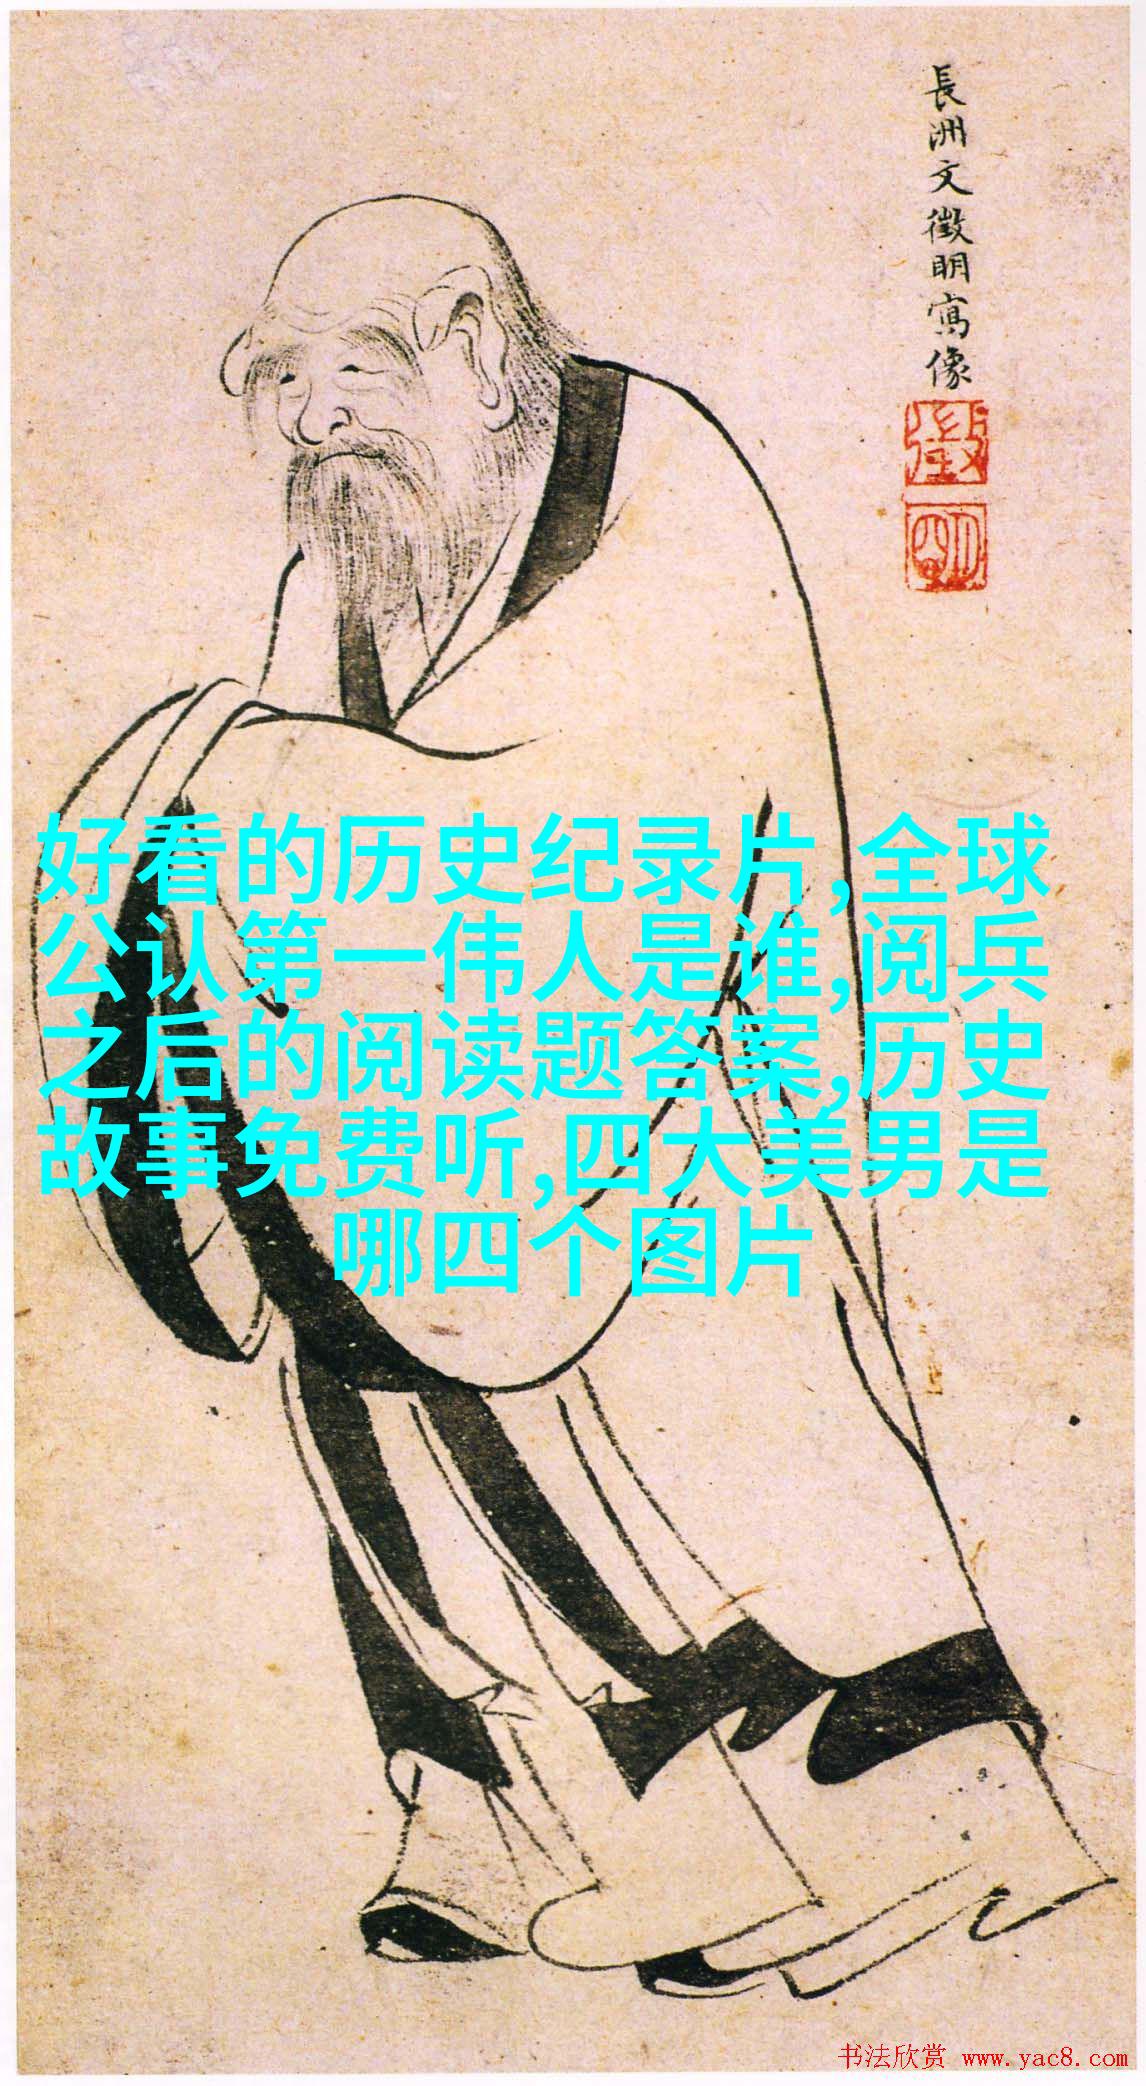 長洲文徵明寫像
徵明
好看的历史纪录片,全球
公认第一伟人是谁,阅兵
之后的阅读题答案,历史
故事免费听,四大美男是
哪四个图片
书法欣赏 www.yac8.com